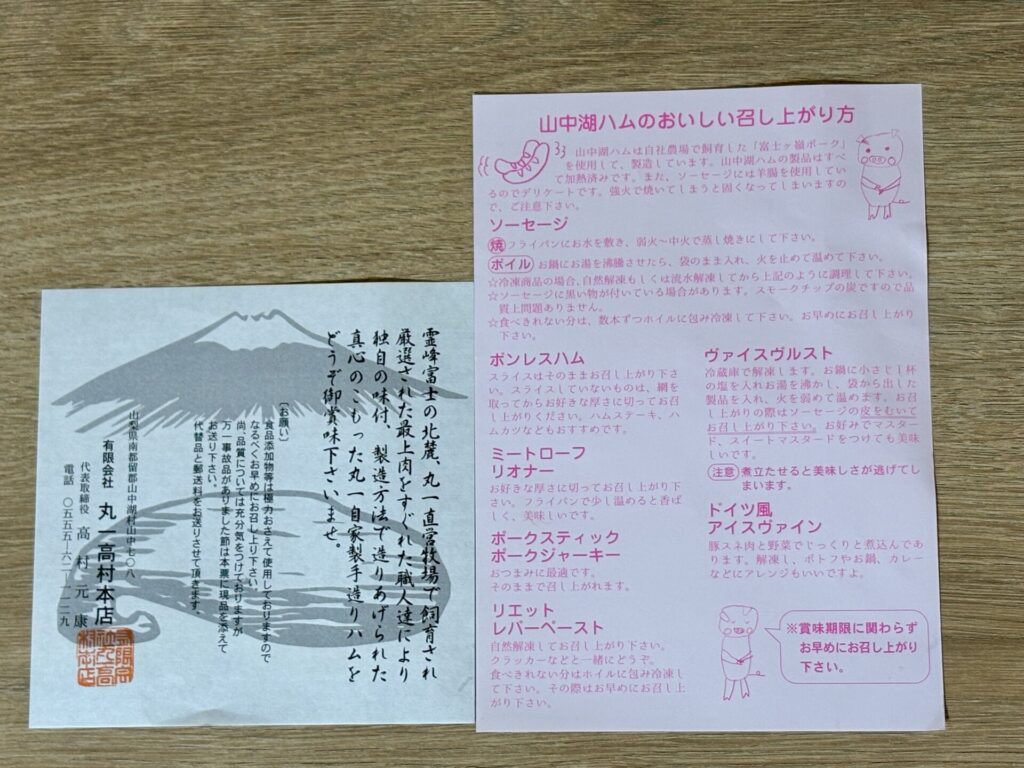 霊峰富士の北麓、丸一直営牧場で飼育され
厳選された最上肉をすぐれた職人達により
独自の味付、製造方法で造りあげられた
真心のこもった丸一自家製手造りハムを
どうぞ御賞味下さいませ。
〔お願い〕
食品添加物等は極力おさえて使用しておりますので
なるべくお早めにお召し上り下さい。
尚、品質については充分気をつけておりますが
万一事故品がありました節は本票に現品を添えて
お送り下さい。
代替品と郵送料をお送りさせて頂きます。
山梨県南都留郡山中湖村山中七〇八
有限会社 丸一高村本店
代表取締役 高村元康
電話 〇五五五-六二-一一二九
山中湖ハムのおいしい召し上がり方
山中湖ハムは自社農場で飼育した「富士ヶ嶺ポーク」
を使用して、製造しています。山中湖ハムの製品はすべ
て加熱済みです。また、ソーセージには羊腸を使用してい
るのでデリケートです。強火で焼いてしまうと固くなってしまいますの
で、ご注意下さい。
ソーセージ
焼 フライパンにお水を敷き、弱火〜中火で蒸し焼きにして下さい。
ボイル お鍋にお湯を沸騰させたら、袋のまま入れ、火を止めて温めて下さい。
☆冷凍商品の場合、自然解凍もしくは流水解凍してから上記のように調理して下さい。
☆ソーセージに黒い物が付いている場合があります。スモークチップの炭ですので品
質上問題ありません。
☆食べきれない分は、数本ずつホイルに包み冷凍して下さい。お早めにお召し上がり
下さい。
ボンレスハム
スライスはそのままお召し上がり下さ
い。スライスしていないものは、網を
取ってからお好きな厚さに切ってお召
し上がりください。ハムステーキ、ハ
ムカツなどもおすすめです。
ミートローフ
リオナー
お好きな厚さに切ってお召し上がり下
さい。フライパンで少し温めると香ば
しく、美味しいです。
ポークスティック
ポークジャーキー
おつまみに最適です。
そのままで召し上がれます。
リエット
レバーペースト
自然解凍してお召し上がり下さい。
クラッカーなどと一緒にどうぞ。
食べきれない分はホイルに包み冷凍し
て下さい。その際はお早めにお召し上
がり下さい。
ヴァイスヴルスト
冷蔵庫で解凍します。お鍋に小さじ1杯
の塩を入れお湯を沸かし、袋から出した
製品を入れ、火を弱めて温めます。お召
し上がりの際はソーセージの皮をむいて
お召し上がり下さい。お好みでマスター
ド、スイートマスタードをつけても美味
しいです。
注意 煮立たせると美味しさが逃げてし
まいます。
ドイツ風
アイスヴァイン
豚スネ肉と野菜でじっくりと煮込んであ
ります。解凍し、ポトフやお鍋、カレー
などにアレンジもいいですよ。
※賞味期限に関わらず
お早めにお召し上がり
下さい。